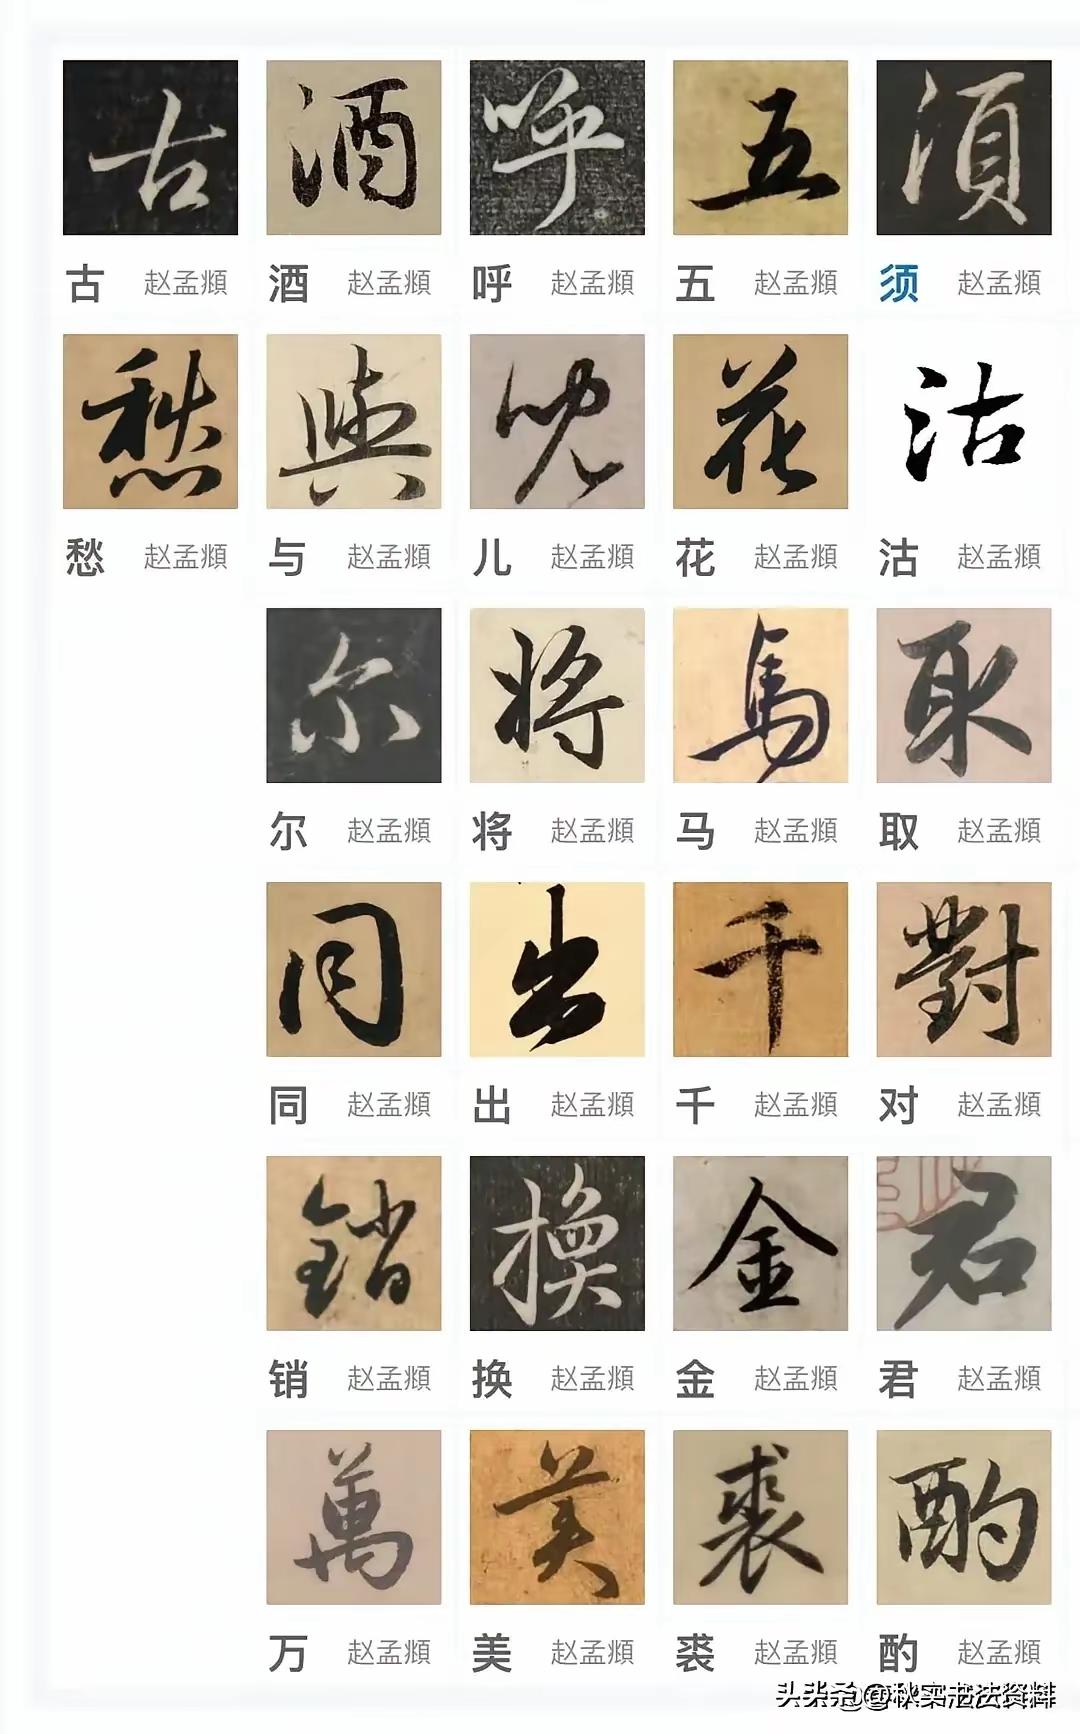 古 酒 呼 五 須
古 赵孟頫 酒 赵孟頫 呼 赵孟頫 五 赵孟頫 须 赵孟頫
愁 與 兒 花 沽
愁 赵孟頫 与 赵孟頫 儿 赵孟頫 花 赵孟頫 沽 赵孟頫
尔 将 馬 取
尔 赵孟頫 将 赵孟頫 马 赵孟頫 取 赵孟頫
同 出 千 對
同 赵孟頫 出 赵孟頫 千 赵孟頫 对 赵孟頫
銷 換 金 君
销 赵孟頫 换 赵孟頫 金 赵孟頫 君 赵孟頫
萬 美 裘 酌
万 赵孟頫 美 赵孟頫 裘 赵孟頫 酌 赵孟頫